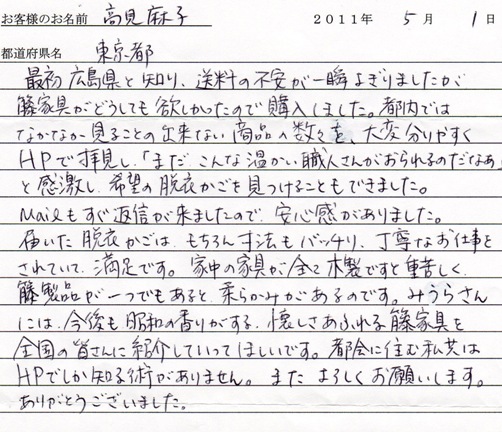 お客様のお名前 高見麻子 2011年 5月 1日
都道府県名 東京都
最初広島県と知り、送料の不安が一瞬よぎりましたが
籐家具がどうしても欲しかったので購入しました。都内では
なかなか見ることの出来ない商品の数々を、大変分りやすく
HPで拝見し、「まだ、こんな温かい職人さんがおられるのだなあ」
と感激し、希望の脱衣かごを見つけることもできました。
Mailもすぐ返信が来ましたので、安心感がありました。
届いた脱衣かごは、もちろん寸法もバッチリ、丁寧なお仕事を
されていて、満足です。家中の家具が全て木製ですと重苦しく、
籐製品が一つでもあると、柔らかみがあるのです。みうらさん
には、今後も昭和の香りがする、懐しさあふれる籐家具を
全国の皆さんに紹介していってほしいです。都会に住む私共は
HPでしか知る術がありません。また、よろしくお願いします。
ありがとうございました。